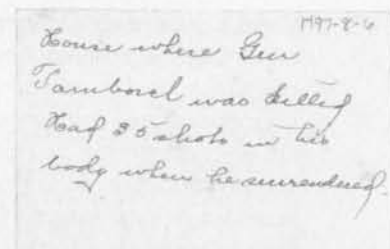 1997-8-6
House where Gen
Tamborel was killed
Had 35 shots in his
body when he surrendered.